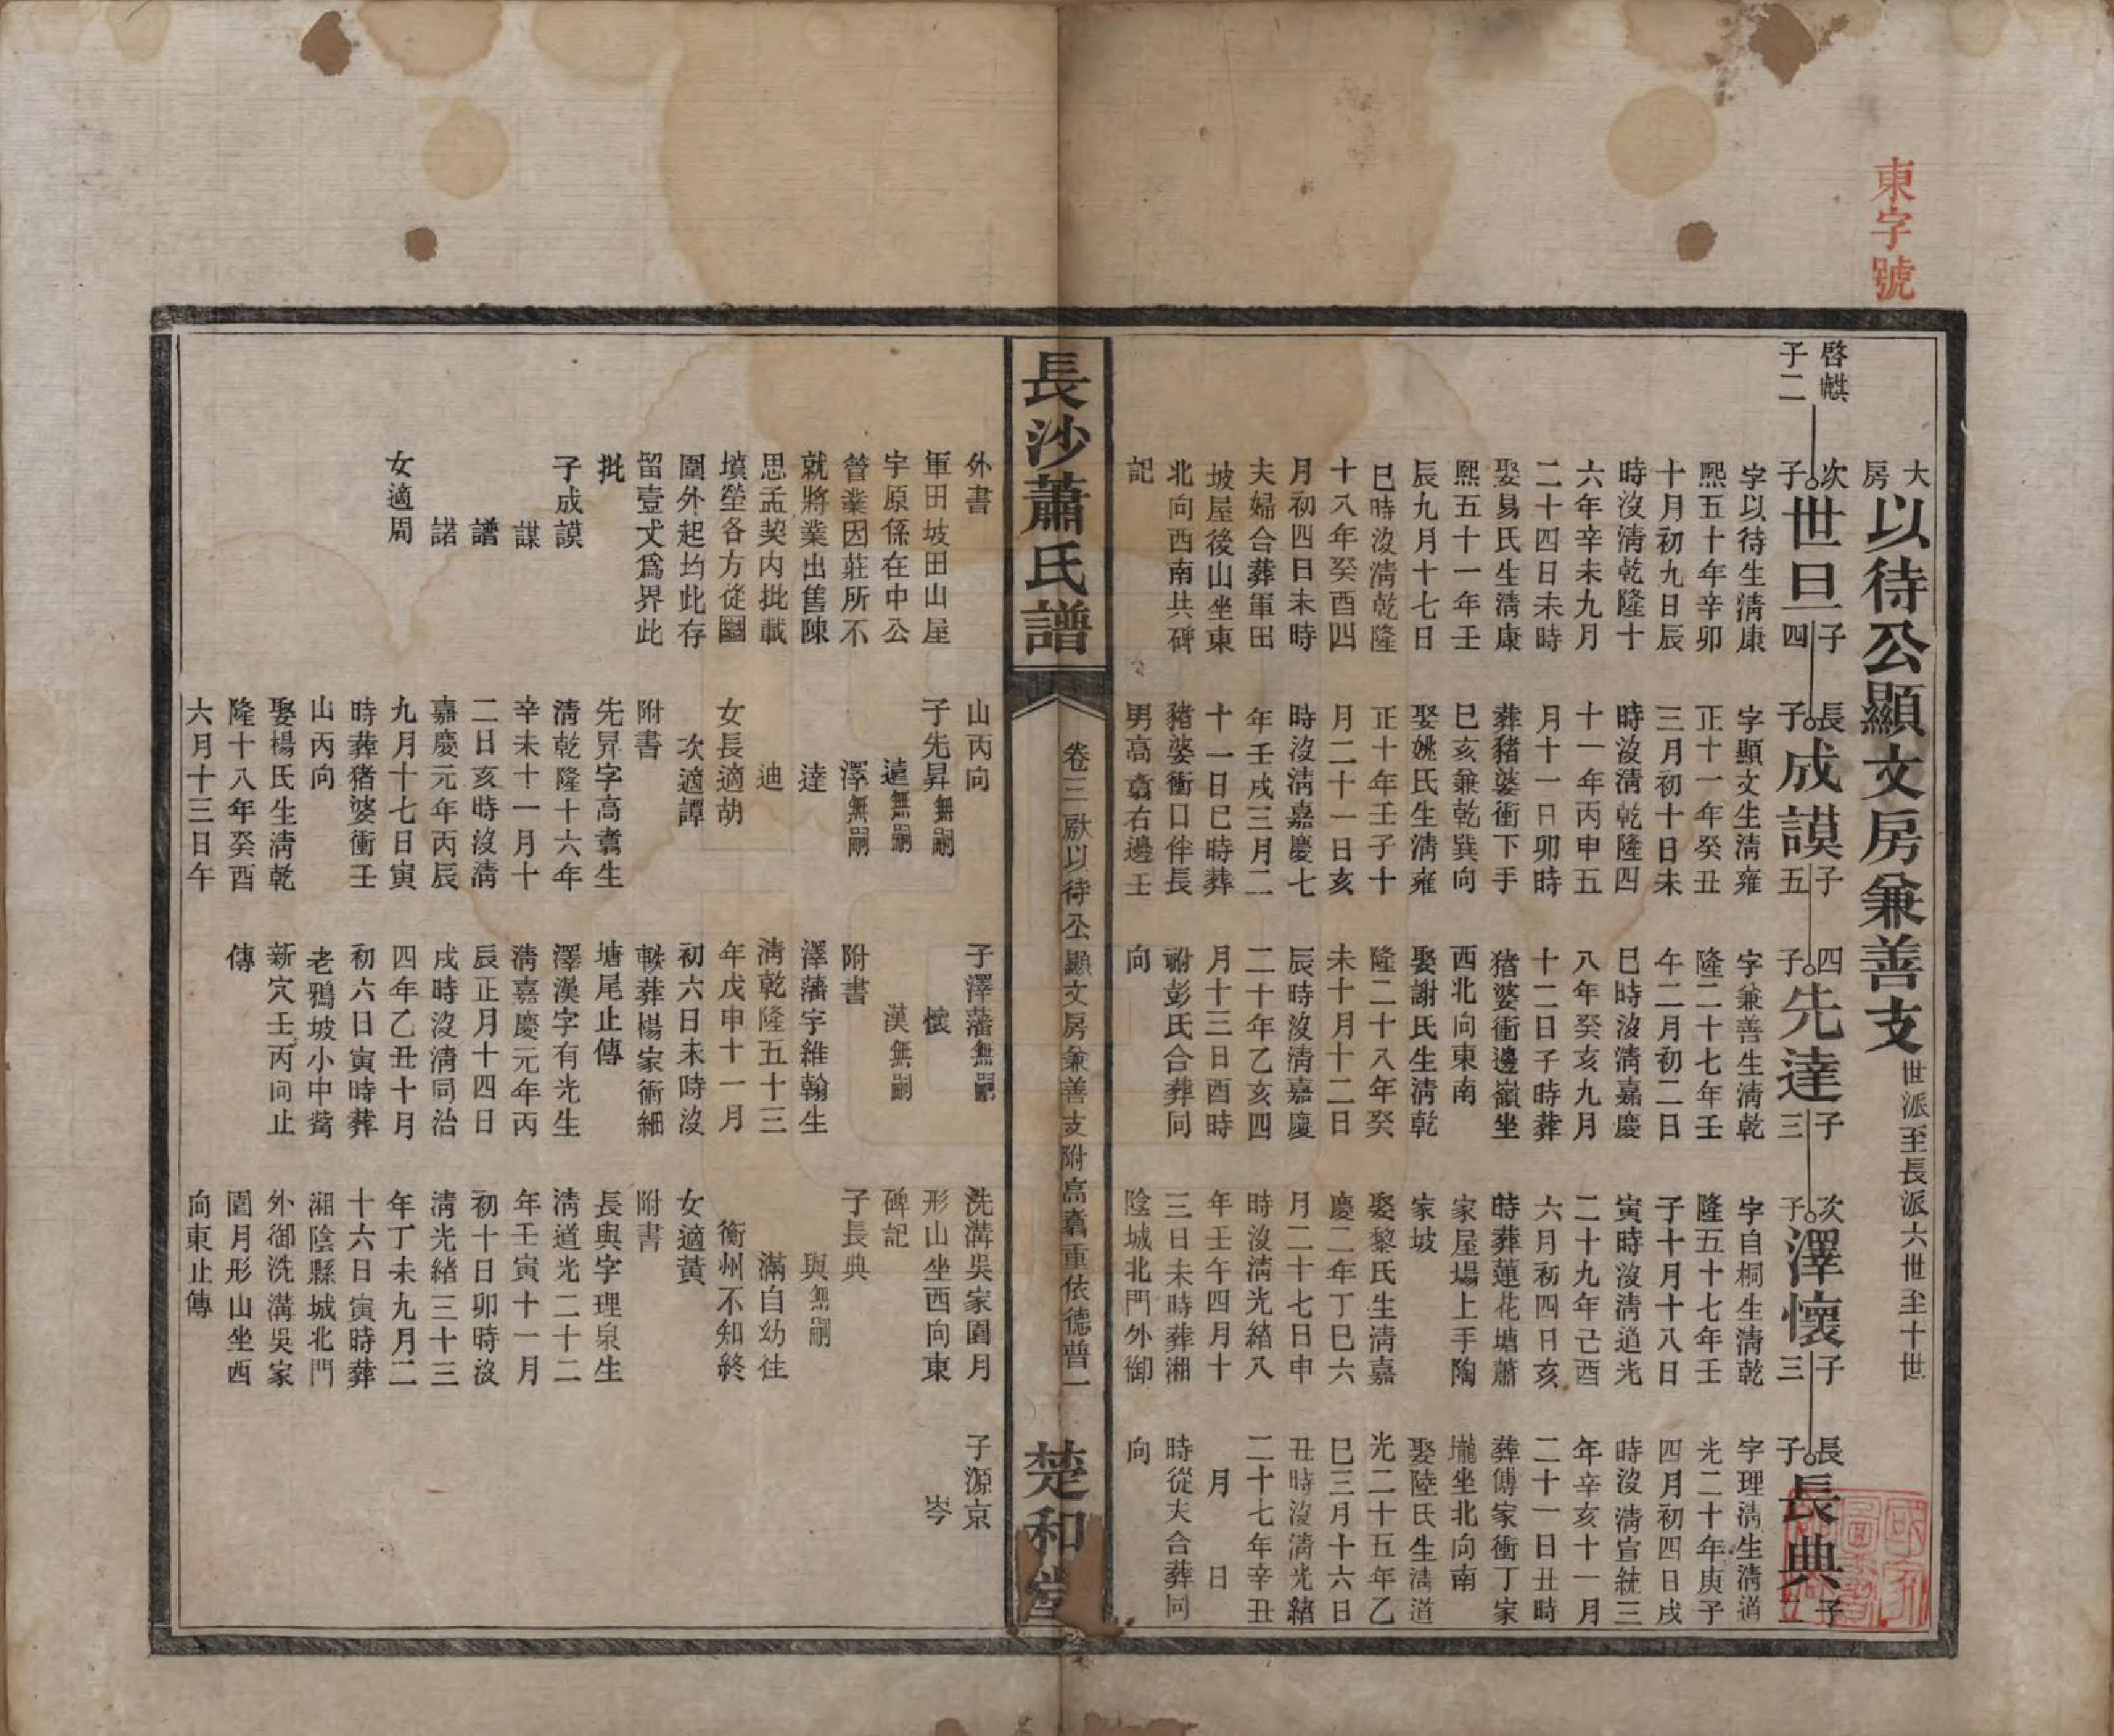 東字號
大房以待公顯文房兼善支世派至長派六世至十世
啓麒子二
次子世旦子四
字以待生清康
熙五十年辛卯
十月初九日辰
時沒清乾隆十
六年辛未九月
二十四日未時
娶易氏生清康
熙五十一年壬
辰九月十七日
巳時沒清乾隆
十八年癸酉四
月初四日未時
夫婦合葬軍田
坡屋後山坐東
北向西南共碑
記
長子成謨子五
字顯文生清雍
正十一年癸丑
三月初十日未
時沒清乾隆四
十一年丙申五
月十一日卯時
葬豬婆衝下手
巳亥兼乾巽向
娶姚氏生清雍
正十年壬子十
月二十一日亥
時沒清嘉慶七
年壬戌三月二
十一日巳時葬
豬婆衝口伴長
男高翥右邊壬
四子先達子三
字兼善生清乾
隆二十七年壬
午二月初二日
巳時沒清嘉慶
八年癸亥九月
十二日子時葬
猪婆衝邊嶺坐
西北向東南
娶謝氏生清乾
隆二十八年癸
未十月十二日
辰時沒清嘉慶
二十年乙亥四
月十三日酉時
祔彭氏合葬同
向
次子澤懷子三
字自桐生清乾
隆五十七年壬
子十月十八日
寅時沒清道光
二十九年己酉
六月初四日亥
時葬蓮花塘蕭
家屋場上手陶
家坡
娶黎氏生清嘉
慶二年丁巳六
月二十七日申
時沒清光緒八
年壬午四月十
三日未時葬湘
陰城北門外御
長子長典子二
字理清生清道
光二十年庚子
四月初四日戌
時沒清宣統三
年辛亥十一月
二十一日丑時
葬傅家衝丁家
壠坐北向南
娶陸氏生清道
光二十五年乙
巳三月十六日
丑時沒清光緒
二十七年辛丑
月　日
時從夫合葬同
向
長沙蕭氏譜
卷三厭以待公顯文房兼善支附高翥重依德普一
楚和堂
外書
軍田坡田山屋
宇原係在中公
營業因莊所不
就將業出售陳
思孟契内批載
墳塋各方從圞
圍外起均此存
留壹丈爲界此
批
子成謨
謀
譜
諾
女適周
山丙向
子先昇無嗣
遠無嗣
澤無嗣
達
迪
女長適胡
次適譚
附書
先昇字高翥生
清乾隆十六年
辛未十一月十
二日亥時沒清
嘉慶元年丙辰
九月十七日寅
時葬猪婆衝壬
山丙向
娶楊氏生清乾
隆十八年癸酉
六月十三日午
子澤藩無嗣
懷
漢無嗣
附書
澤藩字維翰生
清乾隆五十三
年戊申十一月
初六日未時沒
軼葬楊家衝細
塘尾止傳
澤漢字有光生
清嘉慶元年丙
辰正月十四日
戌時沒清同治
四年乙丑十月
初六日寅時葬
老鴉坡小中嵛
新穴壬丙向止
傳
洗溝吳家園月
形山坐西向東
碑記
子長典
與無嗣
滿自幼往
衡州不知終
女適黃
附書
長與字理泉生
清道光二十二
年壬寅十一月
初十日卯時沒
清光緒三十三
年丁未九月二
十六日寅時葬
湘陰縣城北門
外御洗溝吳家
園月形山坐西
向東止傳
子源京
岑